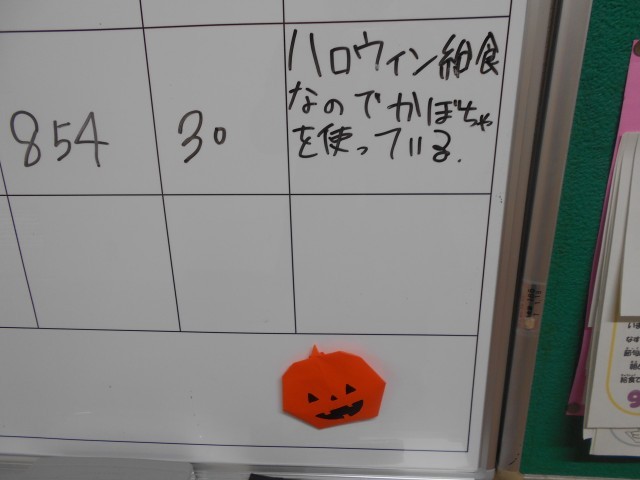 854
30
ハロウィン給食
なのでかぼちゃ
を使っている.